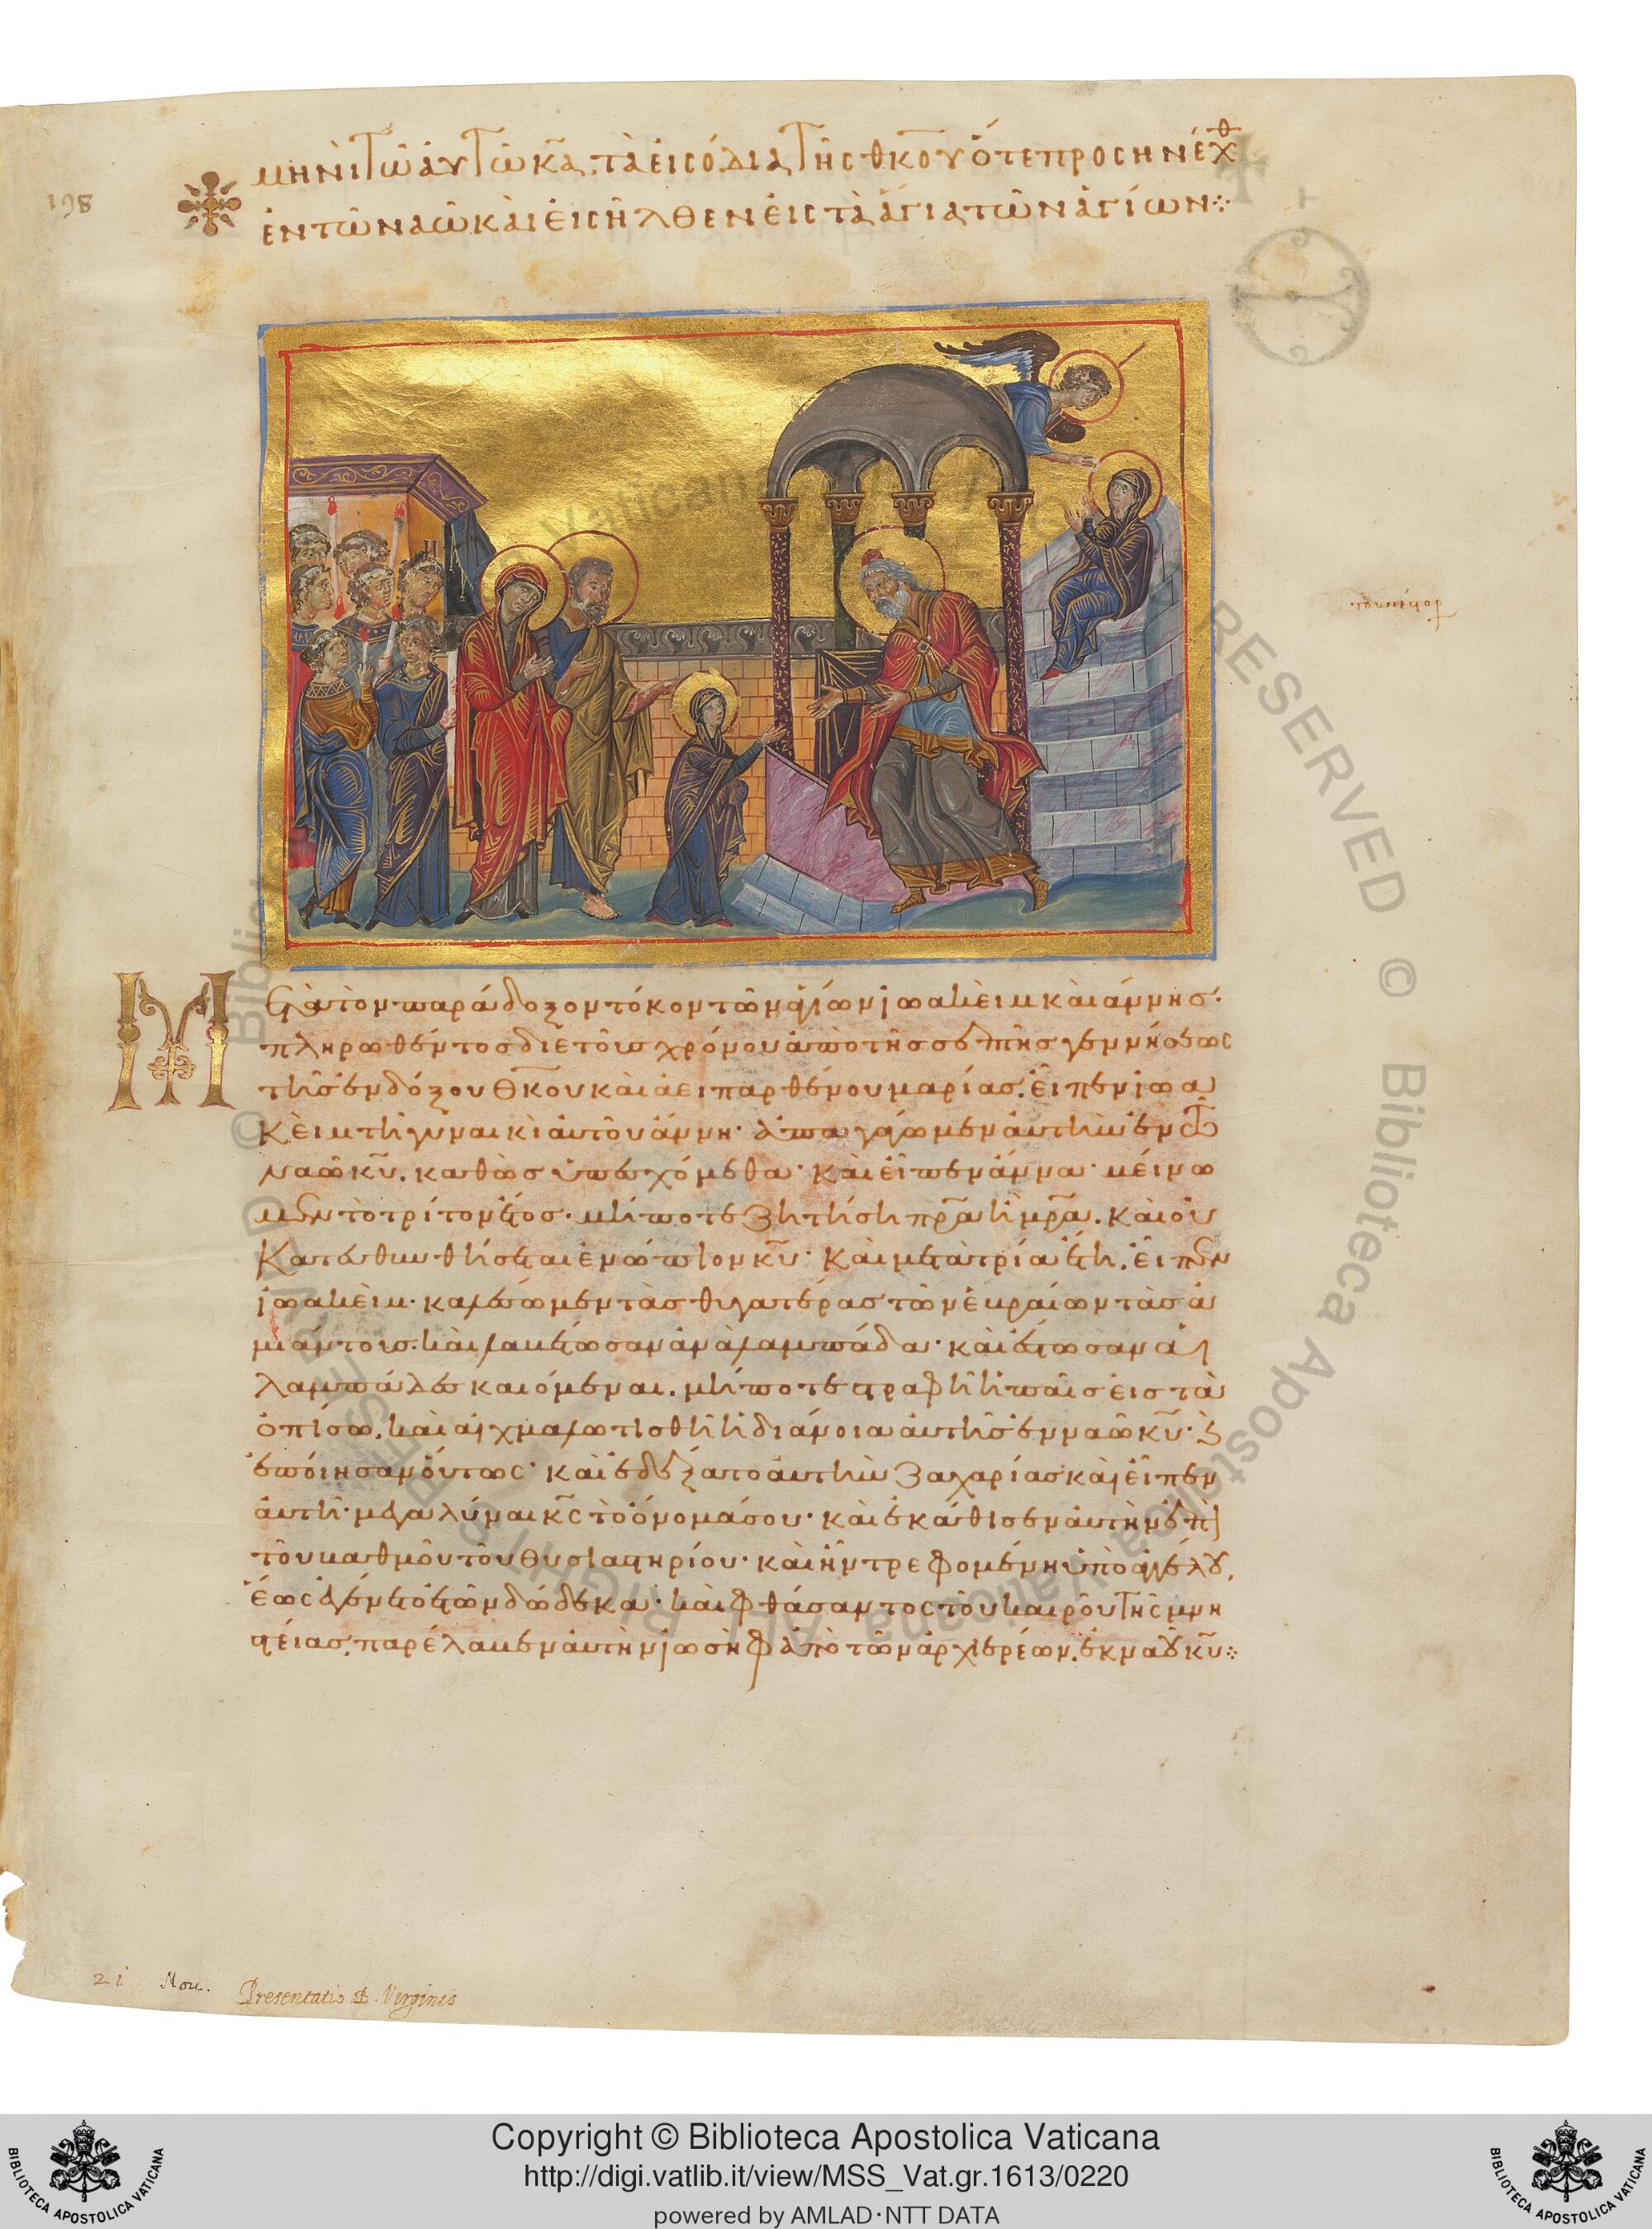 198
μηνὶ τῷ αὐτῷ κ̅α̅. τὰ εἰσόδια τῆς θ̅κ̅ου ὅτε προσηνέχθ
ἐν τῷ ναῷ καὶ εἰσῆλθεν εἰς τὰ ἅγια τῶν ἁγίων⁘
Johannes
Μετὰ τὸν παράδοξον τόκον τῶν ἁγίων ἰωακεὶμ καὶ ἄννης·
πληρωθέντος διετοῦς χρόνου ἀπὸ τῆς σεπτῆς γεννήσεως
τῆς ἐνδόξου θ̅κ̅ου καὶ ἀειπαρθένου μαρίας. εἶπεν ἰωα
κεὶμ τῇ γυναικὶ αὐτοῦ ἄννῃ· ἀπαγάγωμεν αὐτὴν ἐν τῷ
ναῷ κ̅υ̅. καθὼς ὑπεσχόμεθα· καὶ εἶπεν ἄννα· μείνω
μεν τὸ τρίτον ἔτος· μήποτε ζητήσῃ π̅ρ̅α̅ ἢ μ̅ρ̅α̅. καὶ οὐ
κατευθυνθήσεται ἐνώπιον κ̅υ̅· καὶ μετὰ τρία ἔτη. εἶπεν
ἰωακείμ· καλέσωμεν τὰς θυγατέρας τῶν ἑβραίων τὰς ἀ
μιάντους. καὶ λαβέτωσαν ἀνὰ λαμπάδα· καὶ ἔστωσαν αἱ
λαμπάδες καιόμεναι. μήποτε στραφῇ ἡ παῖς εἰς τὰ
ὀπίσω. καὶ αἰχμαλωτισθῇ ἡ διάνοια αὐτῆς ἐν ναῷ κ̅υ̅· ϗ
ἐποίησαν οὕτως· καὶ ἐδέξατο αὐτὴν ζαχαρίας καὶ εἶπεν
αὐτῇ· μεγαλύναι κ̅ς̅ τὸ ὄνομά σου· καὶ ἐκάθισεν αὐτὴν ἐπὶ
τοῦ βαθμοῦ τοῦ θυσιαστηρίου· καὶ ἦν τρεφομένη ὑπὸ ἀγγέλου,
ἕως ἐγένετο ἐτῶν δώδεκα· καὶ φθάσαντος τοῦ καιροῦ τῆς μνη
στείας, παρέλαβεν αὐτὴν ἰωσὴφ ἀπὸ τῶν ἀρχιερέων. ἐκ ναοῦ κ̅υ̅⁘
21 Nou. Presentatio B. Virginis
© Biblioteca Apostolica Vaticana ALL RIGHTS RESERVED
Copyright © Biblioteca Apostolica Vaticana
http://digi.vatlib.it/view/MSS_Vat.gr.1613/0220
powered by AMLAD·NTT DATA
BIBLIOTECA APOSTOLICA VATICANA
BIBLIOTECA APOSTOLICA VATICANA